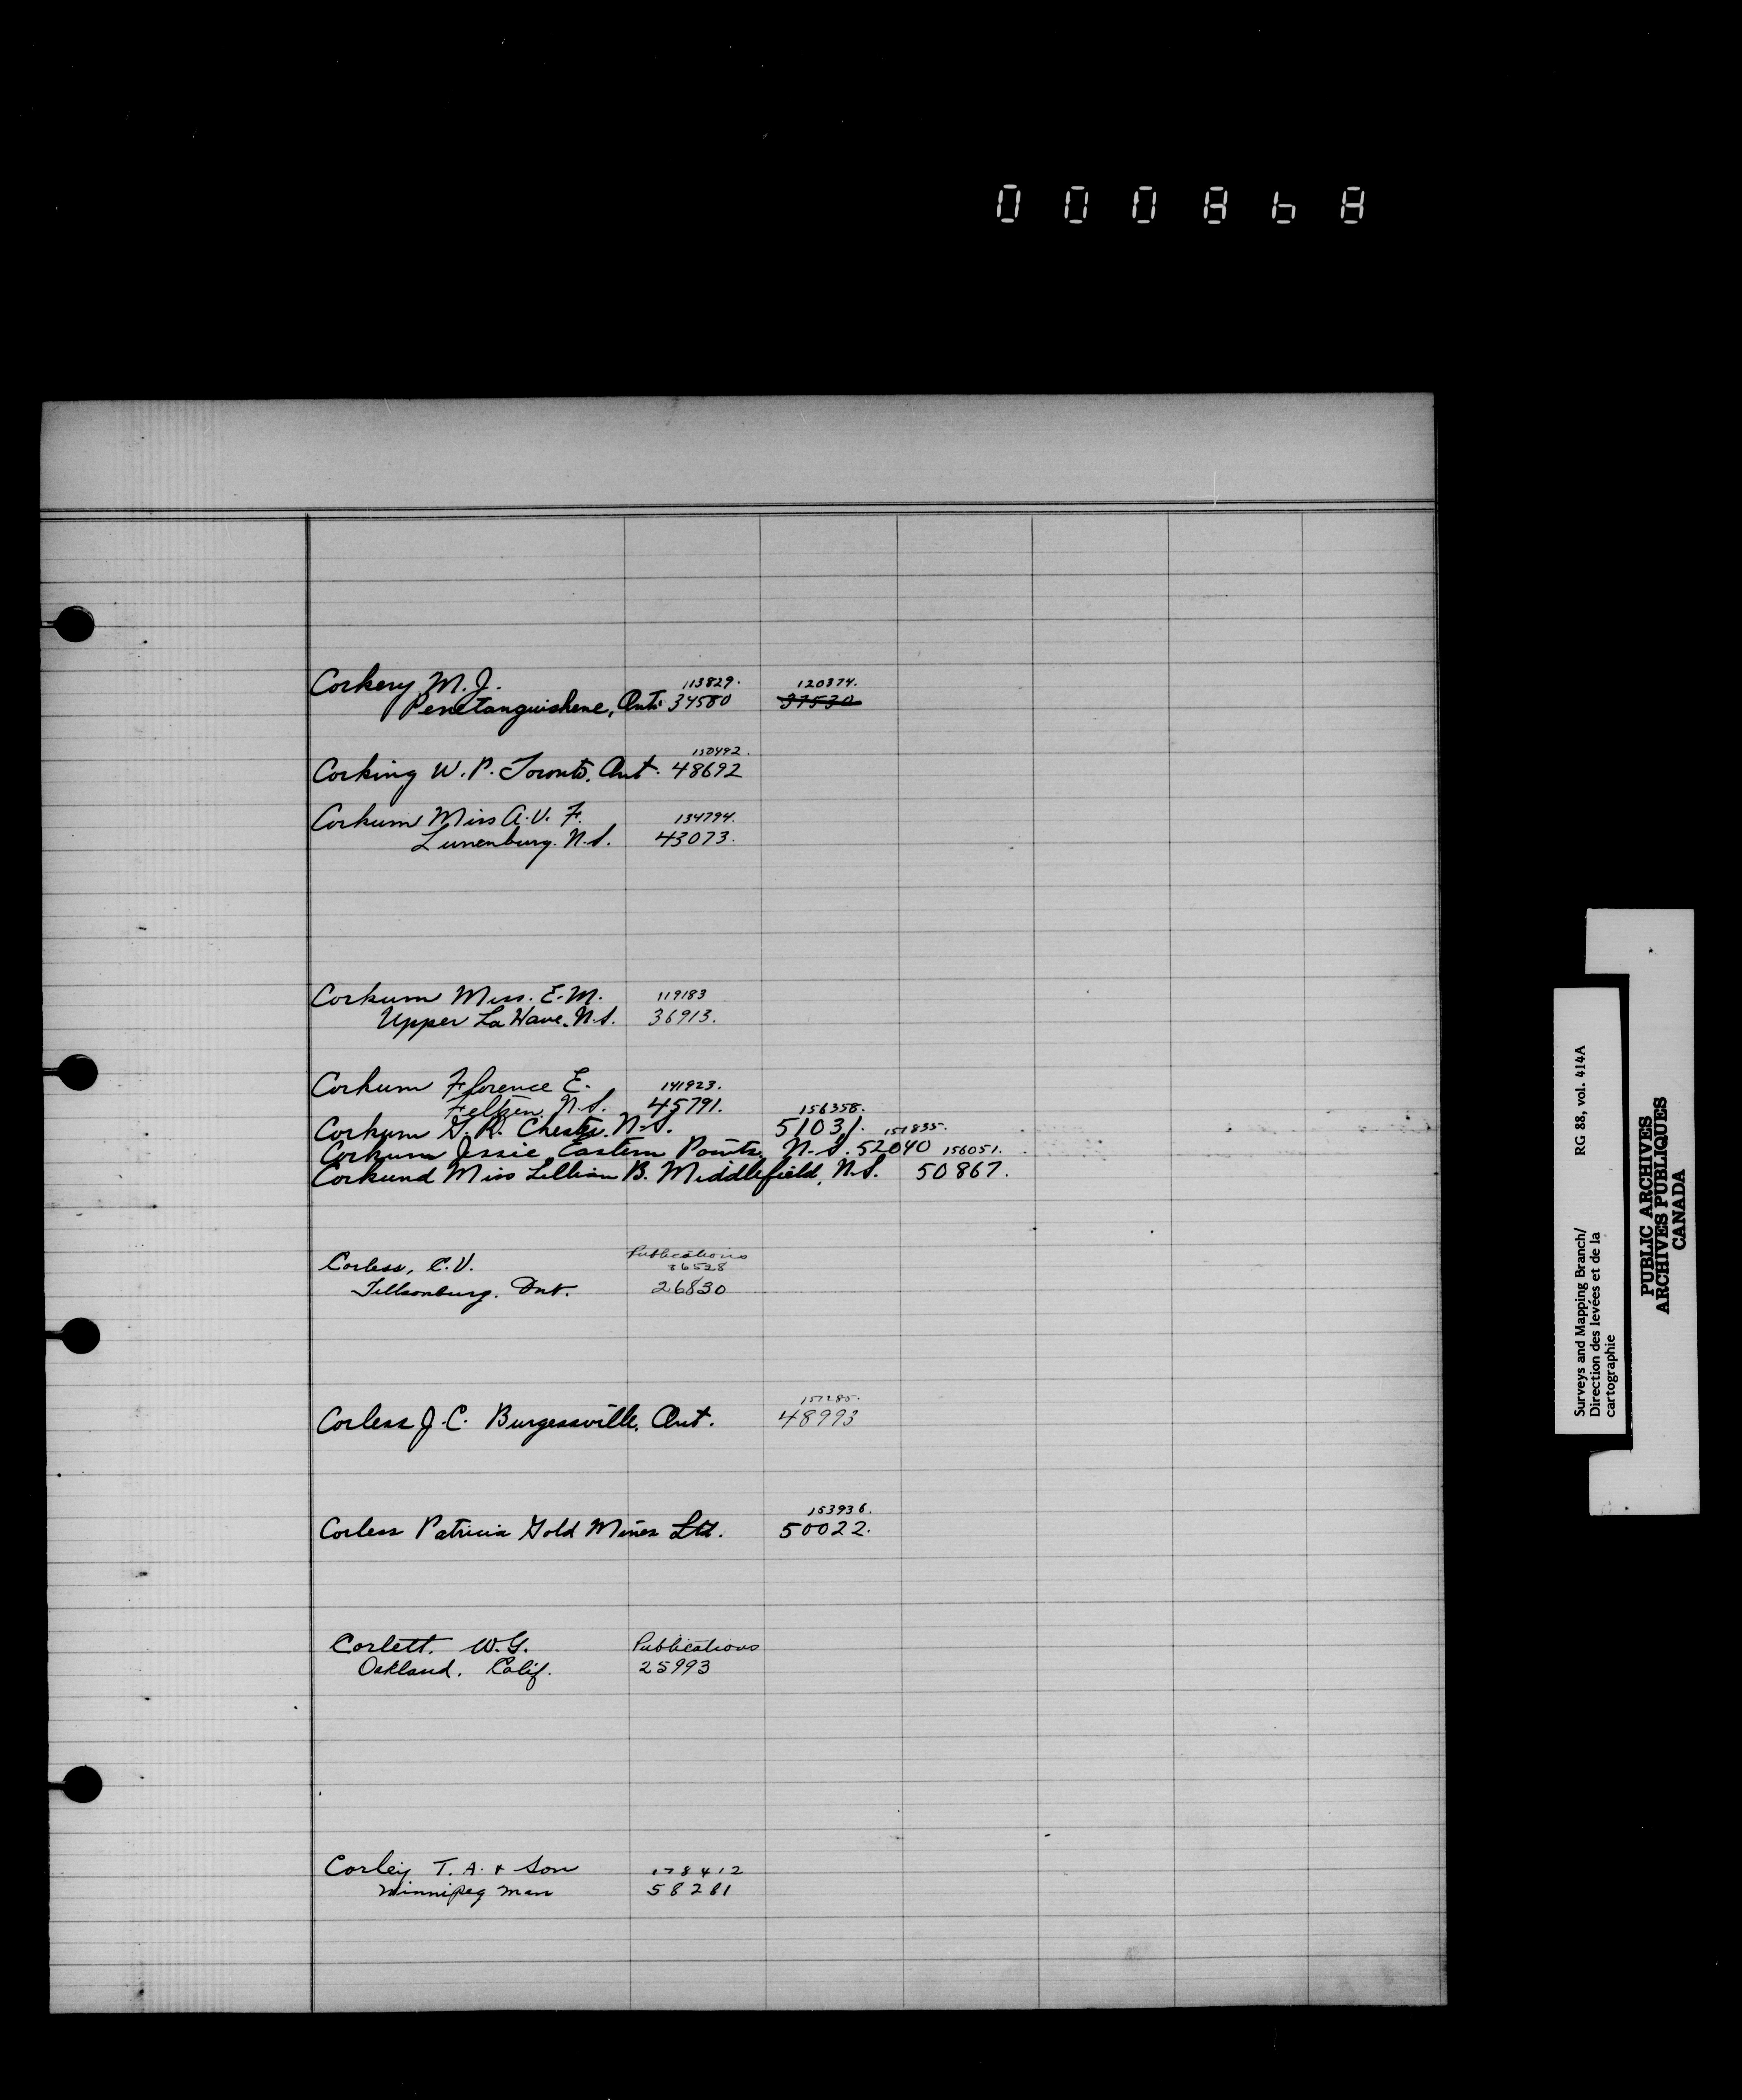 000868
Corkery M. J. 113829. 120374.
Penetanguishene, Ont. 34580 37530
150492.
Corking W. P. Toronto, Ont. 48692
Corkum Miss A. V. F. 134794.
Lunenburg. N.S. 43073.
Corkum Miss. E. M. 119183
Upper La Have. N.S. 36913.
Corkum Florence E. 141923.
Feltzen. N.S. 45791. 156358.
Corkum G. R. Chester. N.S. 51031.
Corkum Jessie, Eastern Points, N.S. 52040 156051.
Corkund Miss Lillian B. Middlefield, N.S. 50867.
Publications
Corless, C. V. 36528
Tillsonburg. Ont. 26830
Corless J. C. Burgessville, Ont. 48993
153936.
Corless Patricia Gold Mines Ltd. 50022.
Corlett. W. G. Publications
Oakland. Calif. 25993
Corley T. A. & Son 178412
Winnipeg Man 58281
Surveys and Mapping Branch/ RG 88, vol. 414A
Direction des levées et de la
cartographie
PUBLIC ARCHIVES
ARCHIVES PUBLIQUES
CANADA